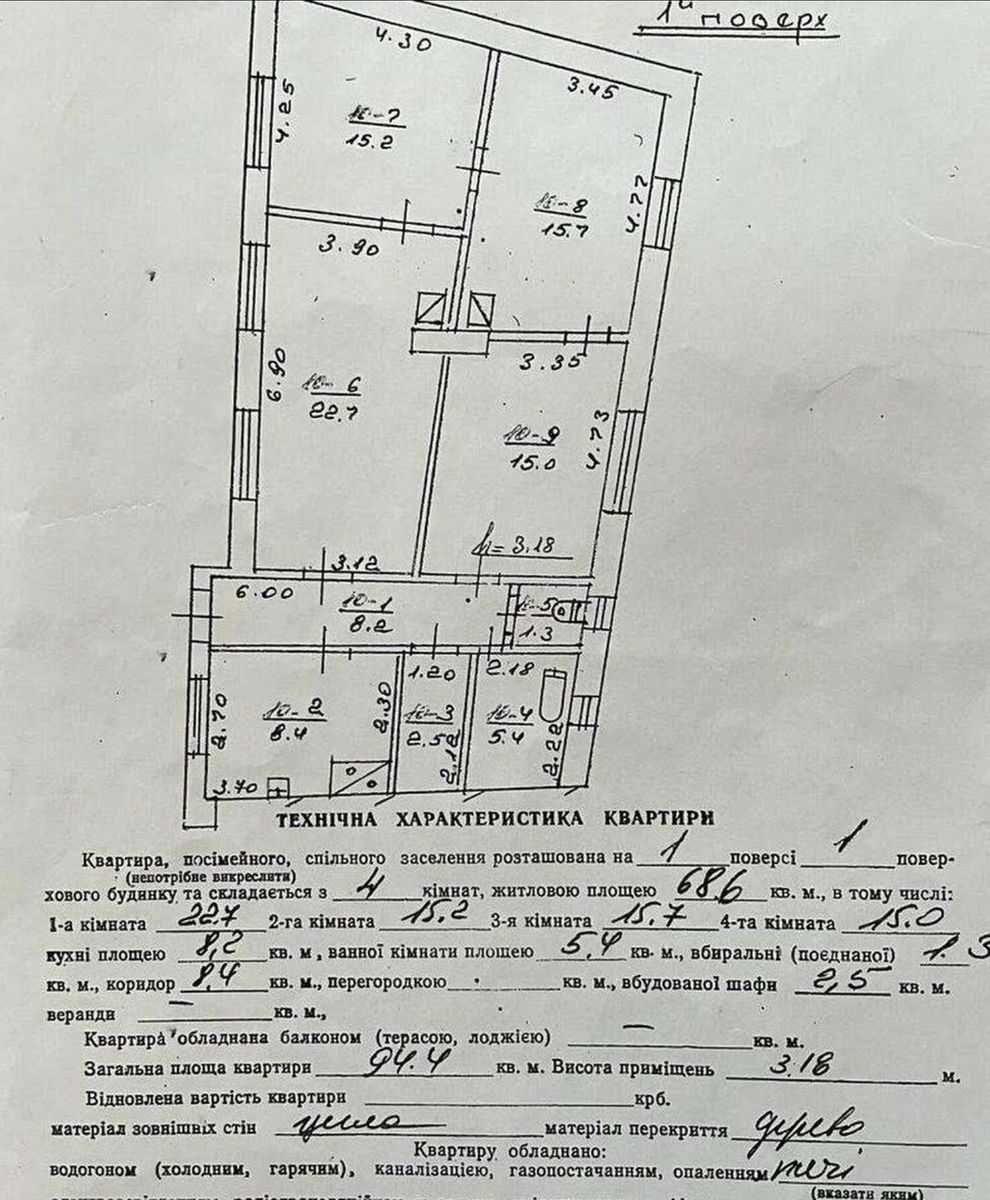 1й поверх
4.30
3.45
4.25
10-7
15.2
4.77
10-8
15.7
3.90
3.35
6.90
10-6
22.7
4.73
10-9
15.0
h=3.18
3.12
6.00
10-1
8.2
10-5
1.3
1.20
2.18
2.70
10-2
8.4
2.30
10-3
2.52
2.12
10-4
5.4
2.22
3.70
ТЕХНІЧНА ХАРАКТЕРИСТИКА КВАРТИРИ
Квартира, посімейного, спільного заселення розташована на 1 поверсі 1 повер-
(непотрібне викреслити)
хового будинку та складається з 4 кімнат, житловою площею 68.6 кв. м., в тому числі:
1-а кімната 22.7 2-га кімната 15.2 3-я кімната 15.7 4-та кімната 15.0
кухні площею 8,2 кв. м, ванної кімнати площею 5,4 кв. м., вбиральні (поєднаної) 1.3
кв. м., коридор 8,4 кв. м., перегородкою кв. м., вбудованої шафи 2,5 кв. м.
веранди — кв. м.,
Квартира обладнана балконом (терасою, лоджією) — кв. м.
Загальна площа квартири 94.4 кв. м. Висота приміщень 3.18 м.
Відновлена вартість квартири крб.
матеріал зовнішніх стін цегла матеріал перекриття дерево
Квартиру обладнано:
водогоном (холодним, гарячим), каналізацією, газопостачанням, опаленням печі
(вказати яким)